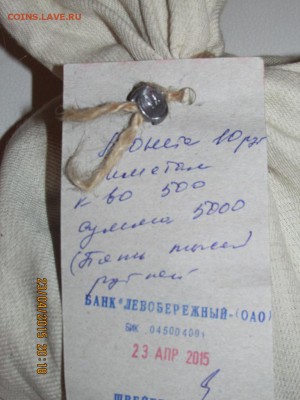 COINS.LAVE.RU
Монета 10 руб
к во 500
сумма 5000
(Пять тысяч
рублей
БАНК "ЛЕВОБЕРЕЖНЫЙ" (ОАО)
БИК 04500400
23 АПР 2015
23/04/2015 20:18